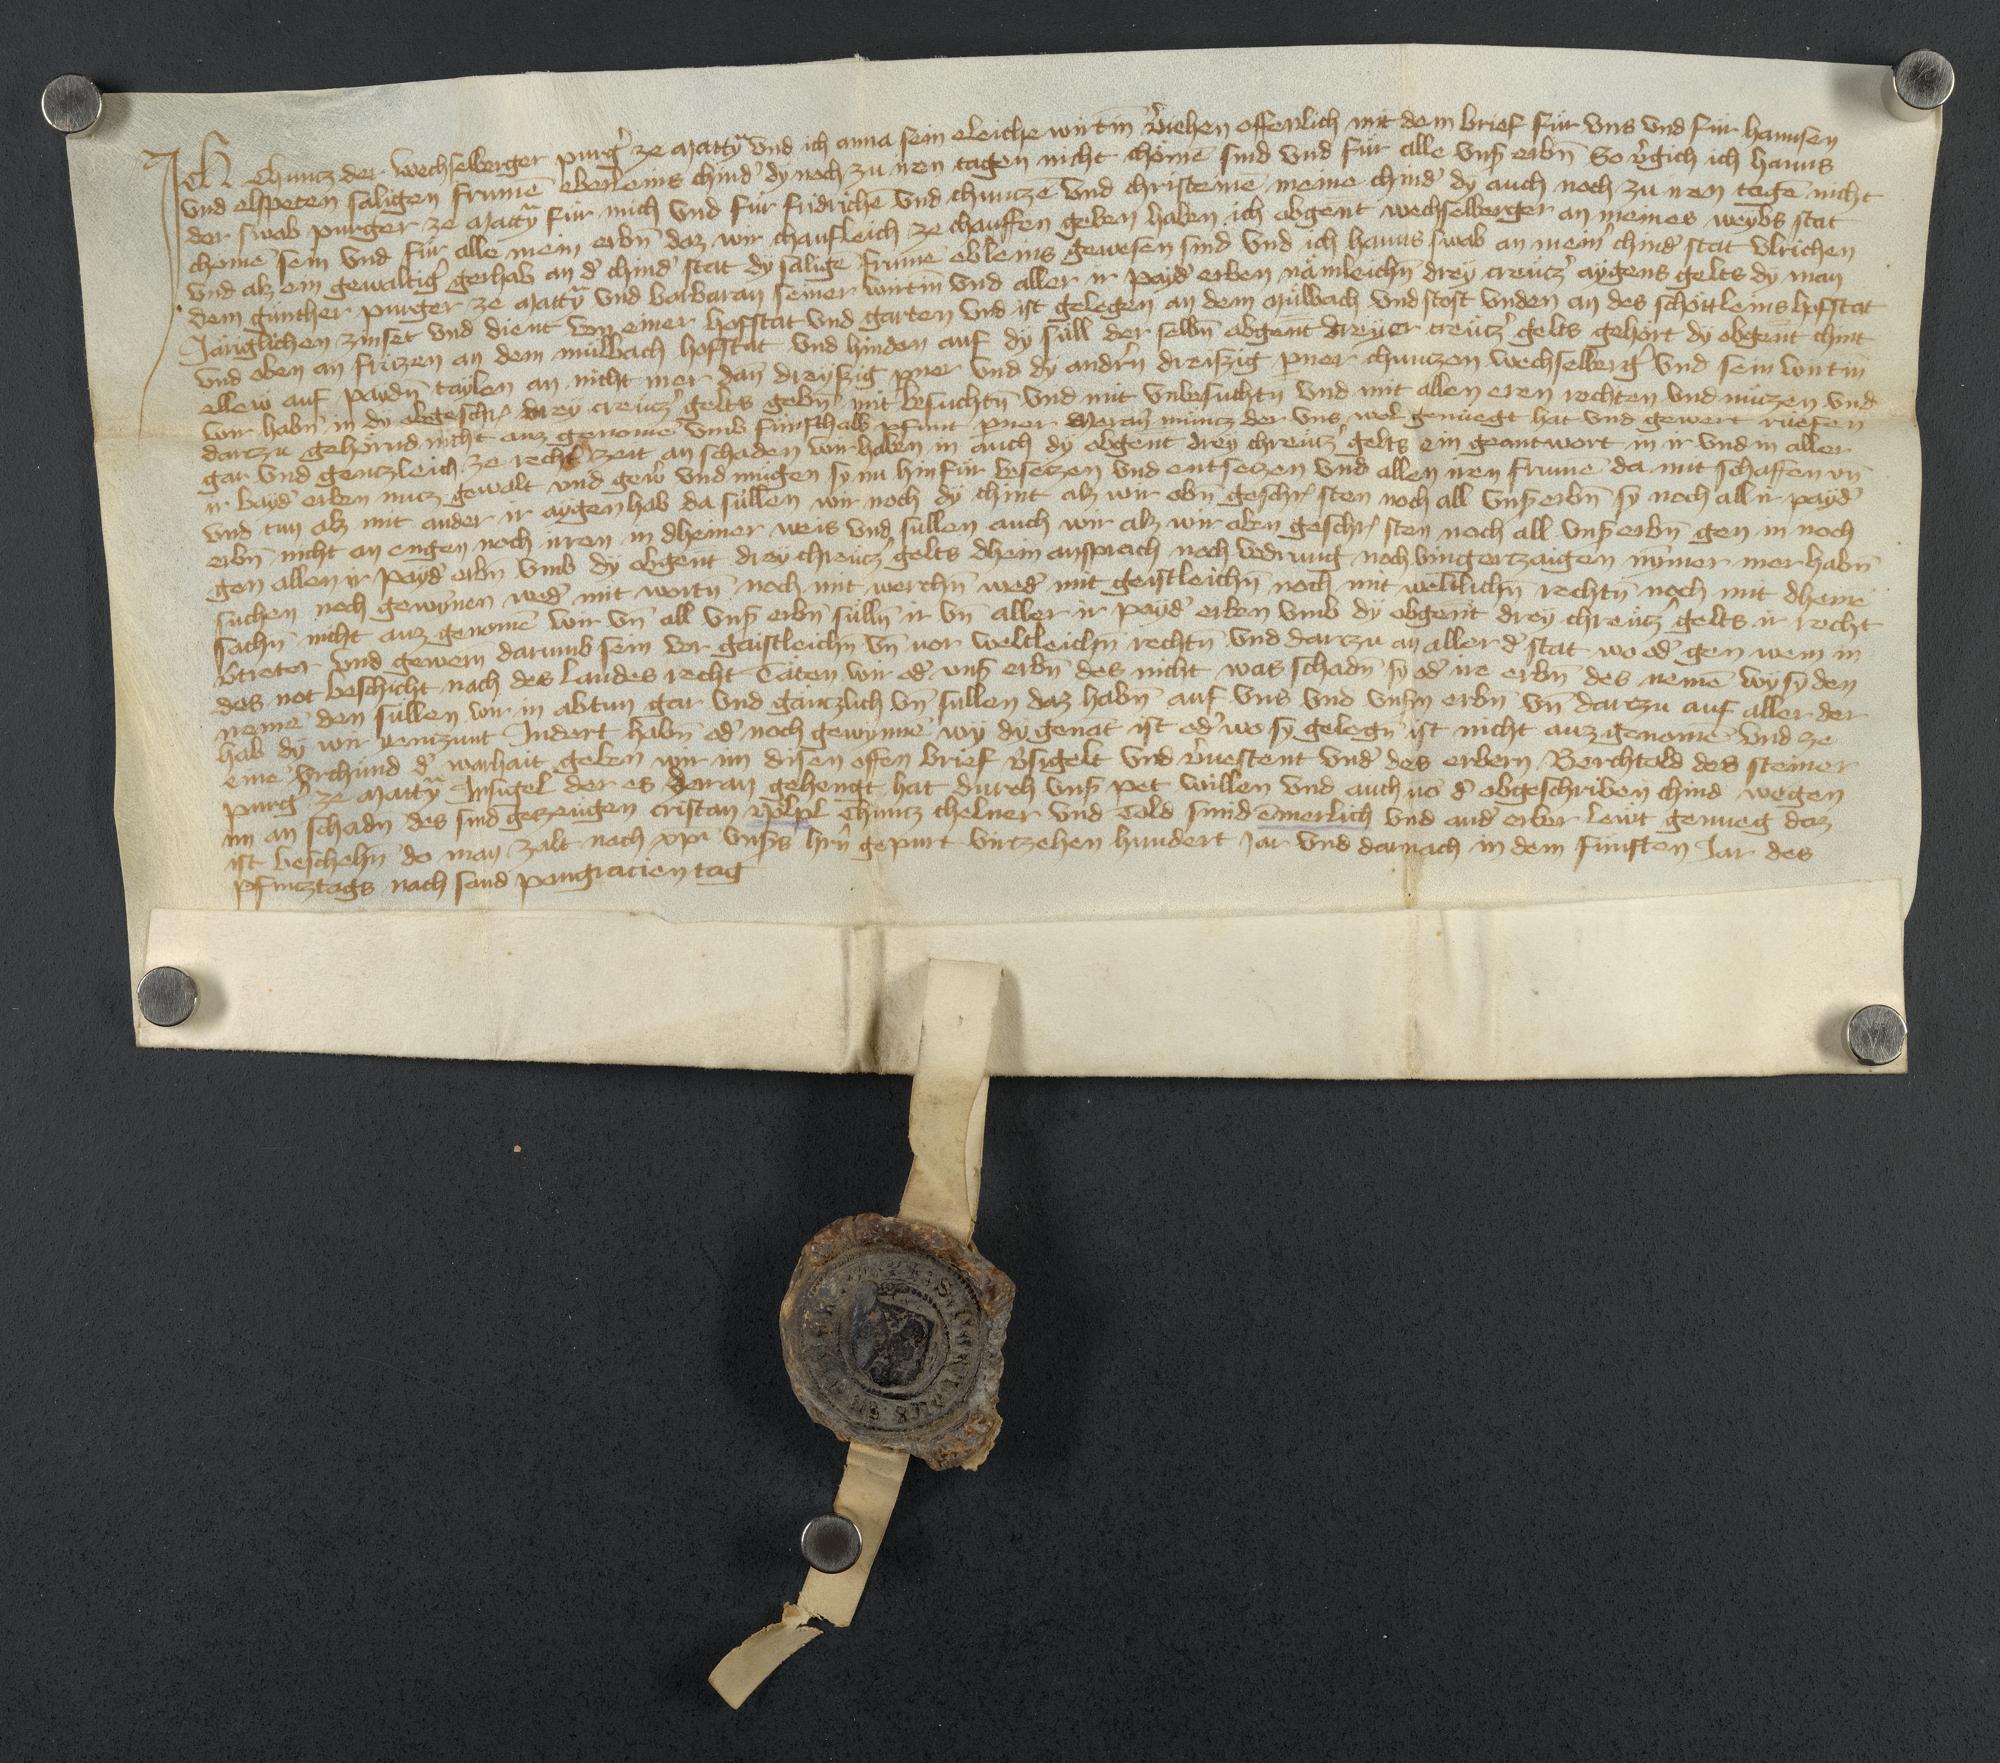 Ich Chuncz der wechselberger purg' ze Matrey vnd ich anna sein eleiche wirtin v'iehen offenlich mit dem brief für vns vnd für hannsen
vnd elspeten saligen frumē eberleins chind' dy noch zu iren tagen nicht chömē sind vnd für alle vnß erbn̄ So v'gich ich hanns
der swab purger ze Matrey für mich vnd für fridrichē vnd chunczē vnd christeinē meine chind' dy auch noch zu iren tagē nicht
chomē sein vnd für alle mein erbn̄ daz wir chaufleich ze chauffen geben haben ich obgent wechselberger an meines weybs stat
vnd alz ein gewaltig' gerhab an d' chind' stat dy salige frumē ebleins gewesen sind vnd ich hanns swab an mein' chind' stat vlrichen
dem günther purger ze Matrey vnd barbaran seiner wirtin vnd aller ir payd' erben nämleichn̄ drey creücz' aygens gelts dy man
Järiglichen zinset vnd dient von einer hofstat vnd garten vnd ist gelegen an dem Mülbach vnd stost vnden an des schöttleins hofstat
vnd oben an friczen an dem mülbach hofstat vnd hinden auf dy süll der selbn̄ obgent dreyer creücz' gelts gehört dy obgent chint
ellew auf paydn̄ taylen an nicht mer dan dreyszig pner vnd dy andrn̄ dreiszig pner chunczen wechselberg' vnd sein wirtin
wir habn̄ in dy obgeschr' drey creücz' gelts gebn̄ mit besuchtn̄ vnd mit vnbesuchtn̄ vnd mit allen eren rechten vnd nuczen vnd
darczu gehörnd nicht auz genomē vmb fünfthalb pfunt pner Meran' münz der vns wol genüegt hat vnd gewert rüefen
gar vnd genczleich ze recht' zeit an schaden wir haben in auch dy obgent drey chreücz' gelts ein geantwort in ir vnd in aller
ir bayd' erben nucz gewalt vnd gew' vnd mügen sy nu hin für beseczen vnd entseczen vnd allen iren frume da mit schaffen vn̄
vnd tun alz mit ander ir aygen hab da süllen wir noch dy chint alz wir obn̄ geschr' sten noch all vnß erbn̄ sy noch all ir payd'
erbn̄ nicht an engen noch irren in dheiner weis vnd süllen auch wir alz wir oben geschr' sten noch all vnß erbn̄ gen in noch
gen allen ir payd' erbn̄ vmb dy obgent drey chreücz' gelts dhein ansprach noch vodrung noch vingerczaigen nymer mer habn̄
suchen noch gewynen wed' mit wortn̄ noch mit werchn̄ wed' mit geistleichn̄ noch mit weltlichn̄ rechtn̄ noch mit dheinē
sachn̄ nicht auz genomē wir vn̄ all vnß erbn̄ sülln̄ ir vn̄ aller ir payd' erben vmb dy obgent drey chreücz' gelts ir recht
v'treter vnd gewern darumb sein vor gaistleichn̄ vn̄ uor weltleichn̄ rechtn̄ vnd darczu an aller d' stat wo od' gen wem in
des not beschicht nach des landes recht Täten wir od' vnß erbn̄ des nicht was schadn̄ sy od' ire erbn̄ des nemē wy sy den
nemē den süllen wir in abtun gar vnd gänczlich vn̄ süllen daz habn̄ auf vns vnd vnßn erbn̄ vn̄ darczu auf aller der
hab dy wir yemzunt Indert habn̄ od' noch gewynnē wy dy genāt ist od' wo sy gelegn̄ ist nicht auz genomē vnd ze
eine vrchund d' warhait geben wir im disen offen brief v'sigelt vnd v'uestent vnd' des erbern Berchtold des steiner
purg' ze Matrey Insigel der es daran gehengt hat durch vnß pet willen vnd auch uō d' obgeschriben chind wegen
im an schadn̄ des sind geczeugen cristan völpl Chuncz chelner vnd Told smid emerlich vnd and' erber lewt genueg daz
ist beschehn̄ do man zalt nach xpi vnßs hrn̄ gepurt virczehen hundert Jar vnd darnach in dem fünften Jar des
pfincztags nach sand pongracien tag